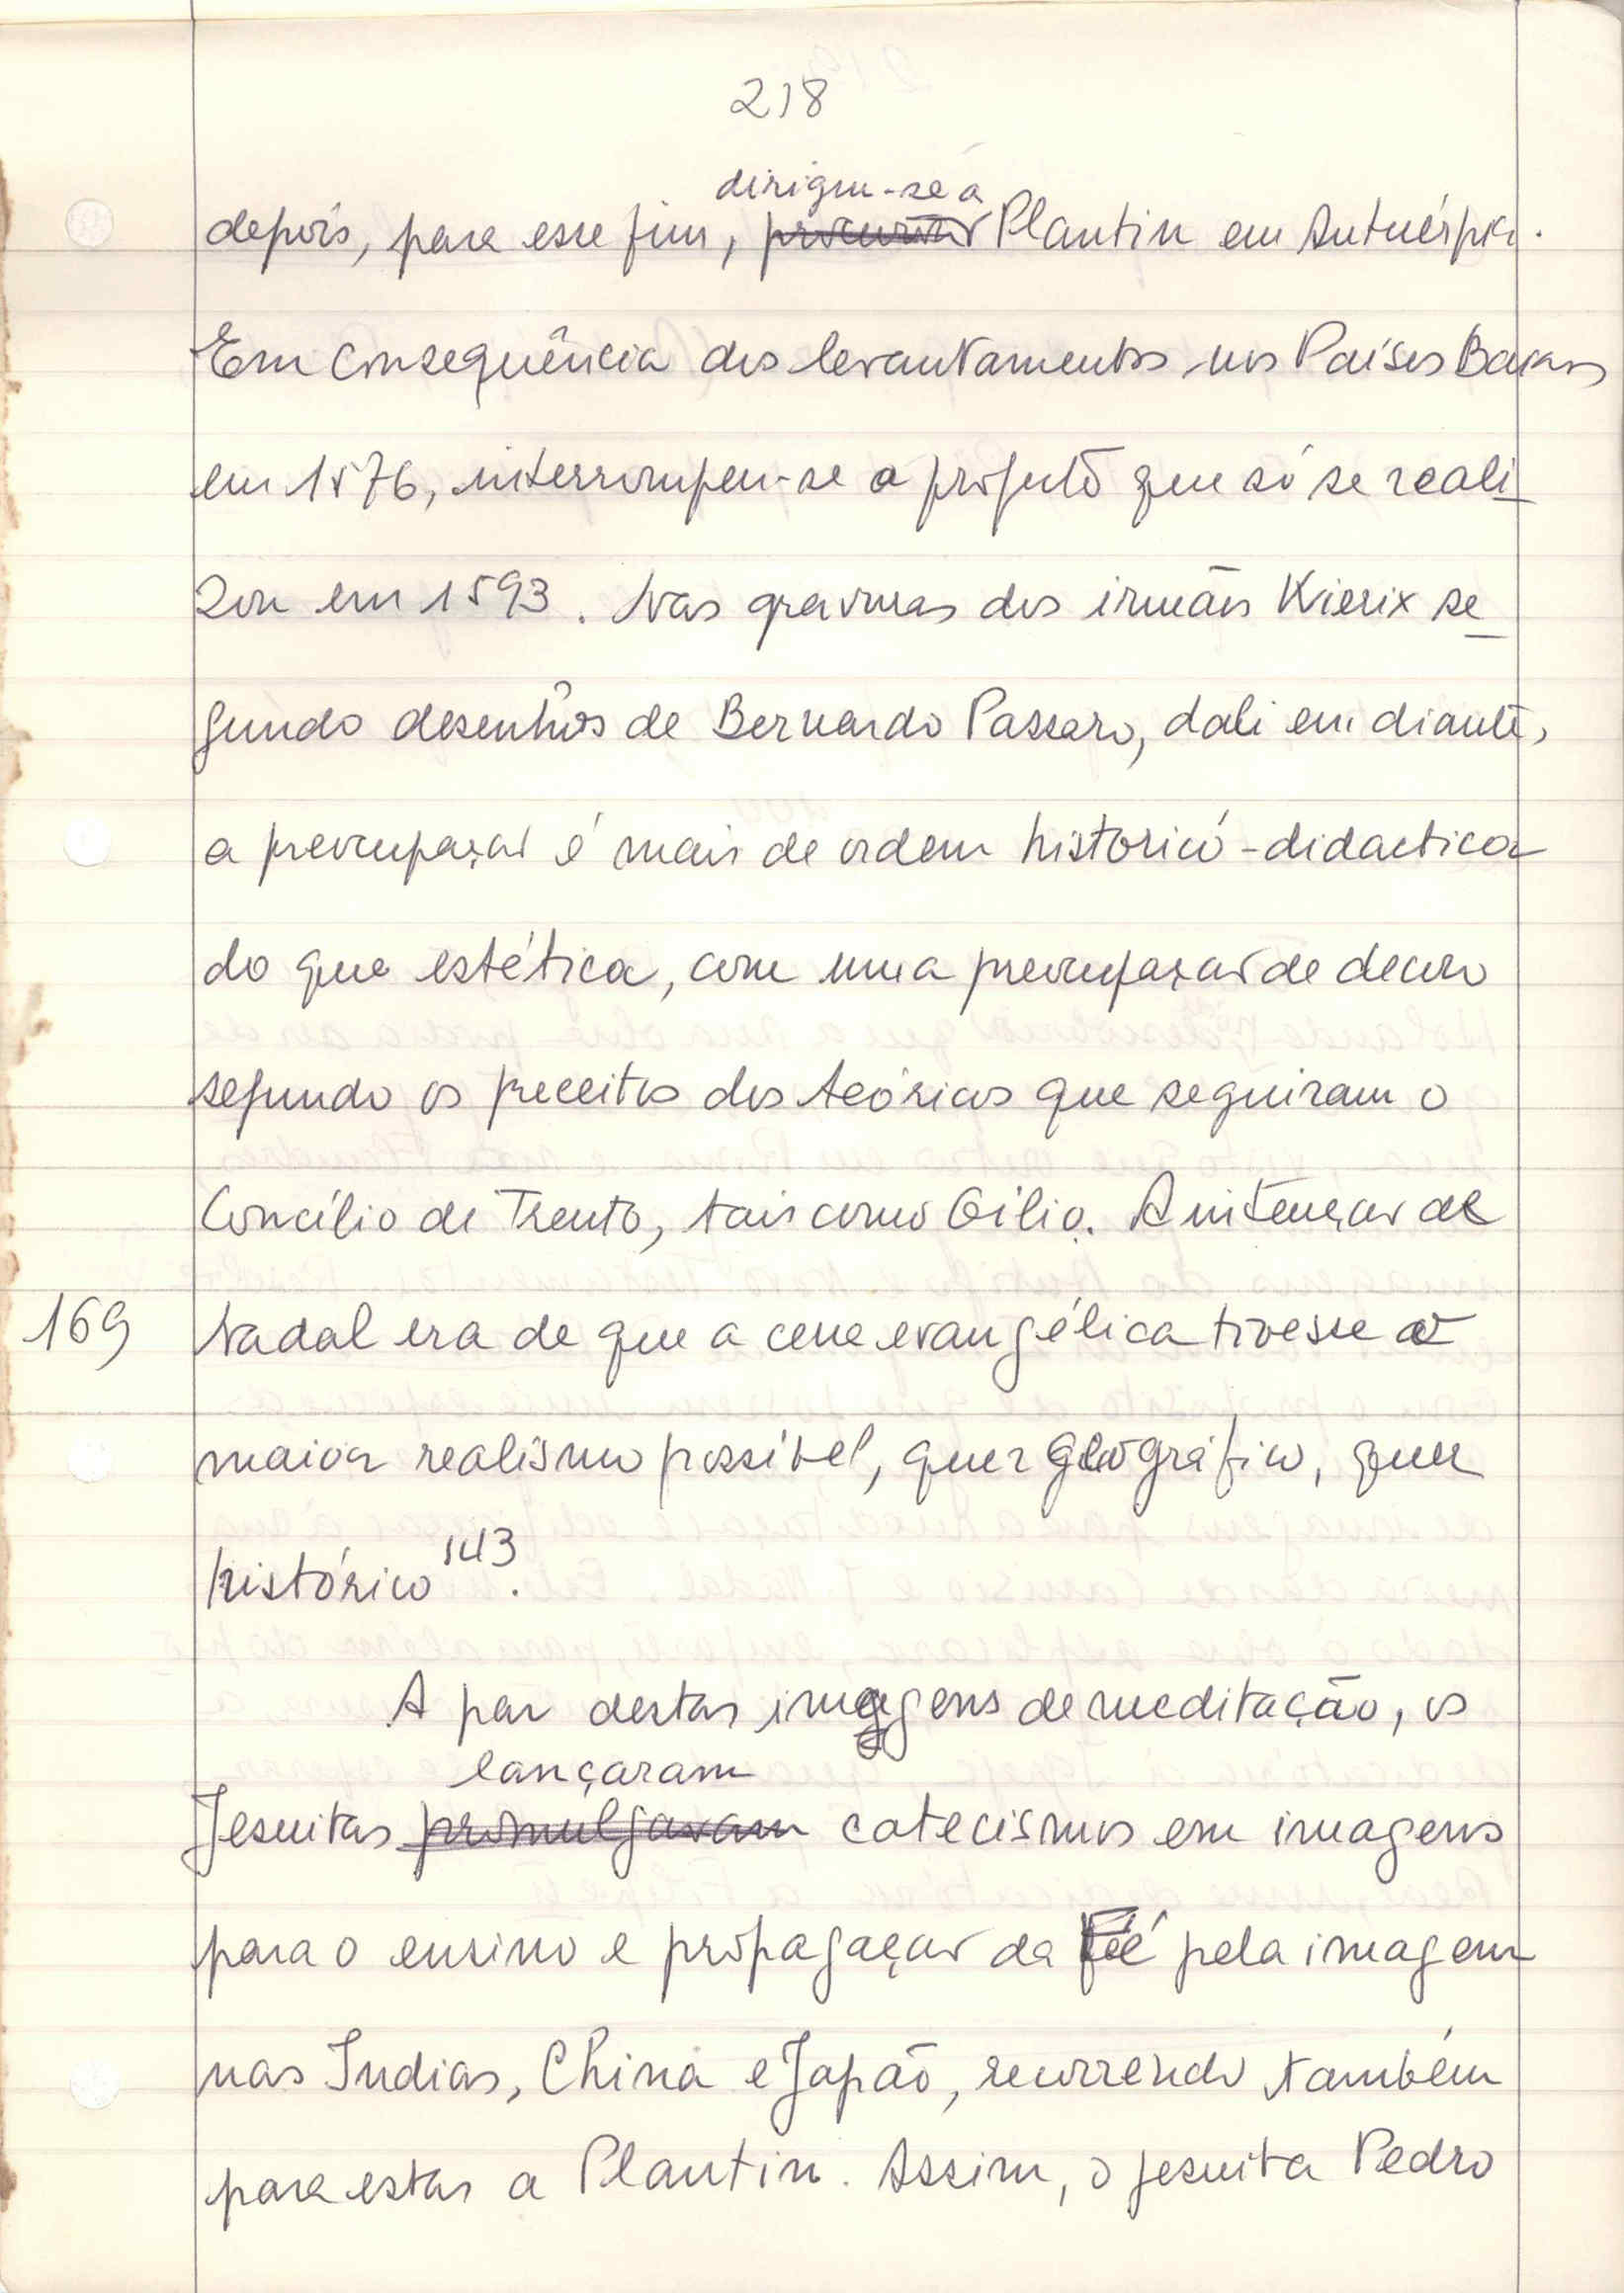 218
dirigiu-se a
depois, para esse fim, procurar Plantin em Antuérpia.
Em consequência dos levantamentos nos Países Baixos
em 1576, interrompeu-se o projecto que só se reali
zou em 1593. Nas gravuras dos irmãos Wierix se
gundo desenhos de Bernardo Passaro, dali em diante,
a preocupação é mais de ordem historico-didactica
do que estética, com uma preocupação de decoro
segundo os preceitos dos teóricos que seguiram o
Concílio de Trento, tais como Gilio. A intenção de
169 Nadal era de que a cena evangélica tivesse o
maior realismo possível, quer geográfico, quer
histórico 143.
A par destas imagens de meditação, os
lançaram
Jesuitas promulgavam catecismos em imagens
para o ensino e propagação da Fé pela imagem
nas Indias, China e Japão, recorrendo também
para estas a Plantin. Assim, o jesuita Pedro